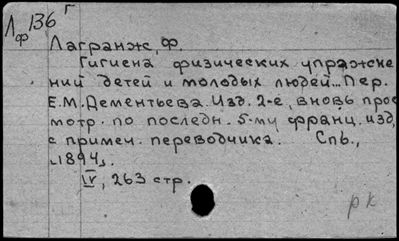 Лф 136 г
Лагранж, Ф.
Гигиена физических упражне
ний детей и молодых людей... Пер.
Е.М. Дементьева. Изд. 2-е, вновь прос
мотр. по последн. 5-му франц. изд,
с примеч. переводчика. Спб.,
1894.
IV, 263 стр.
рк